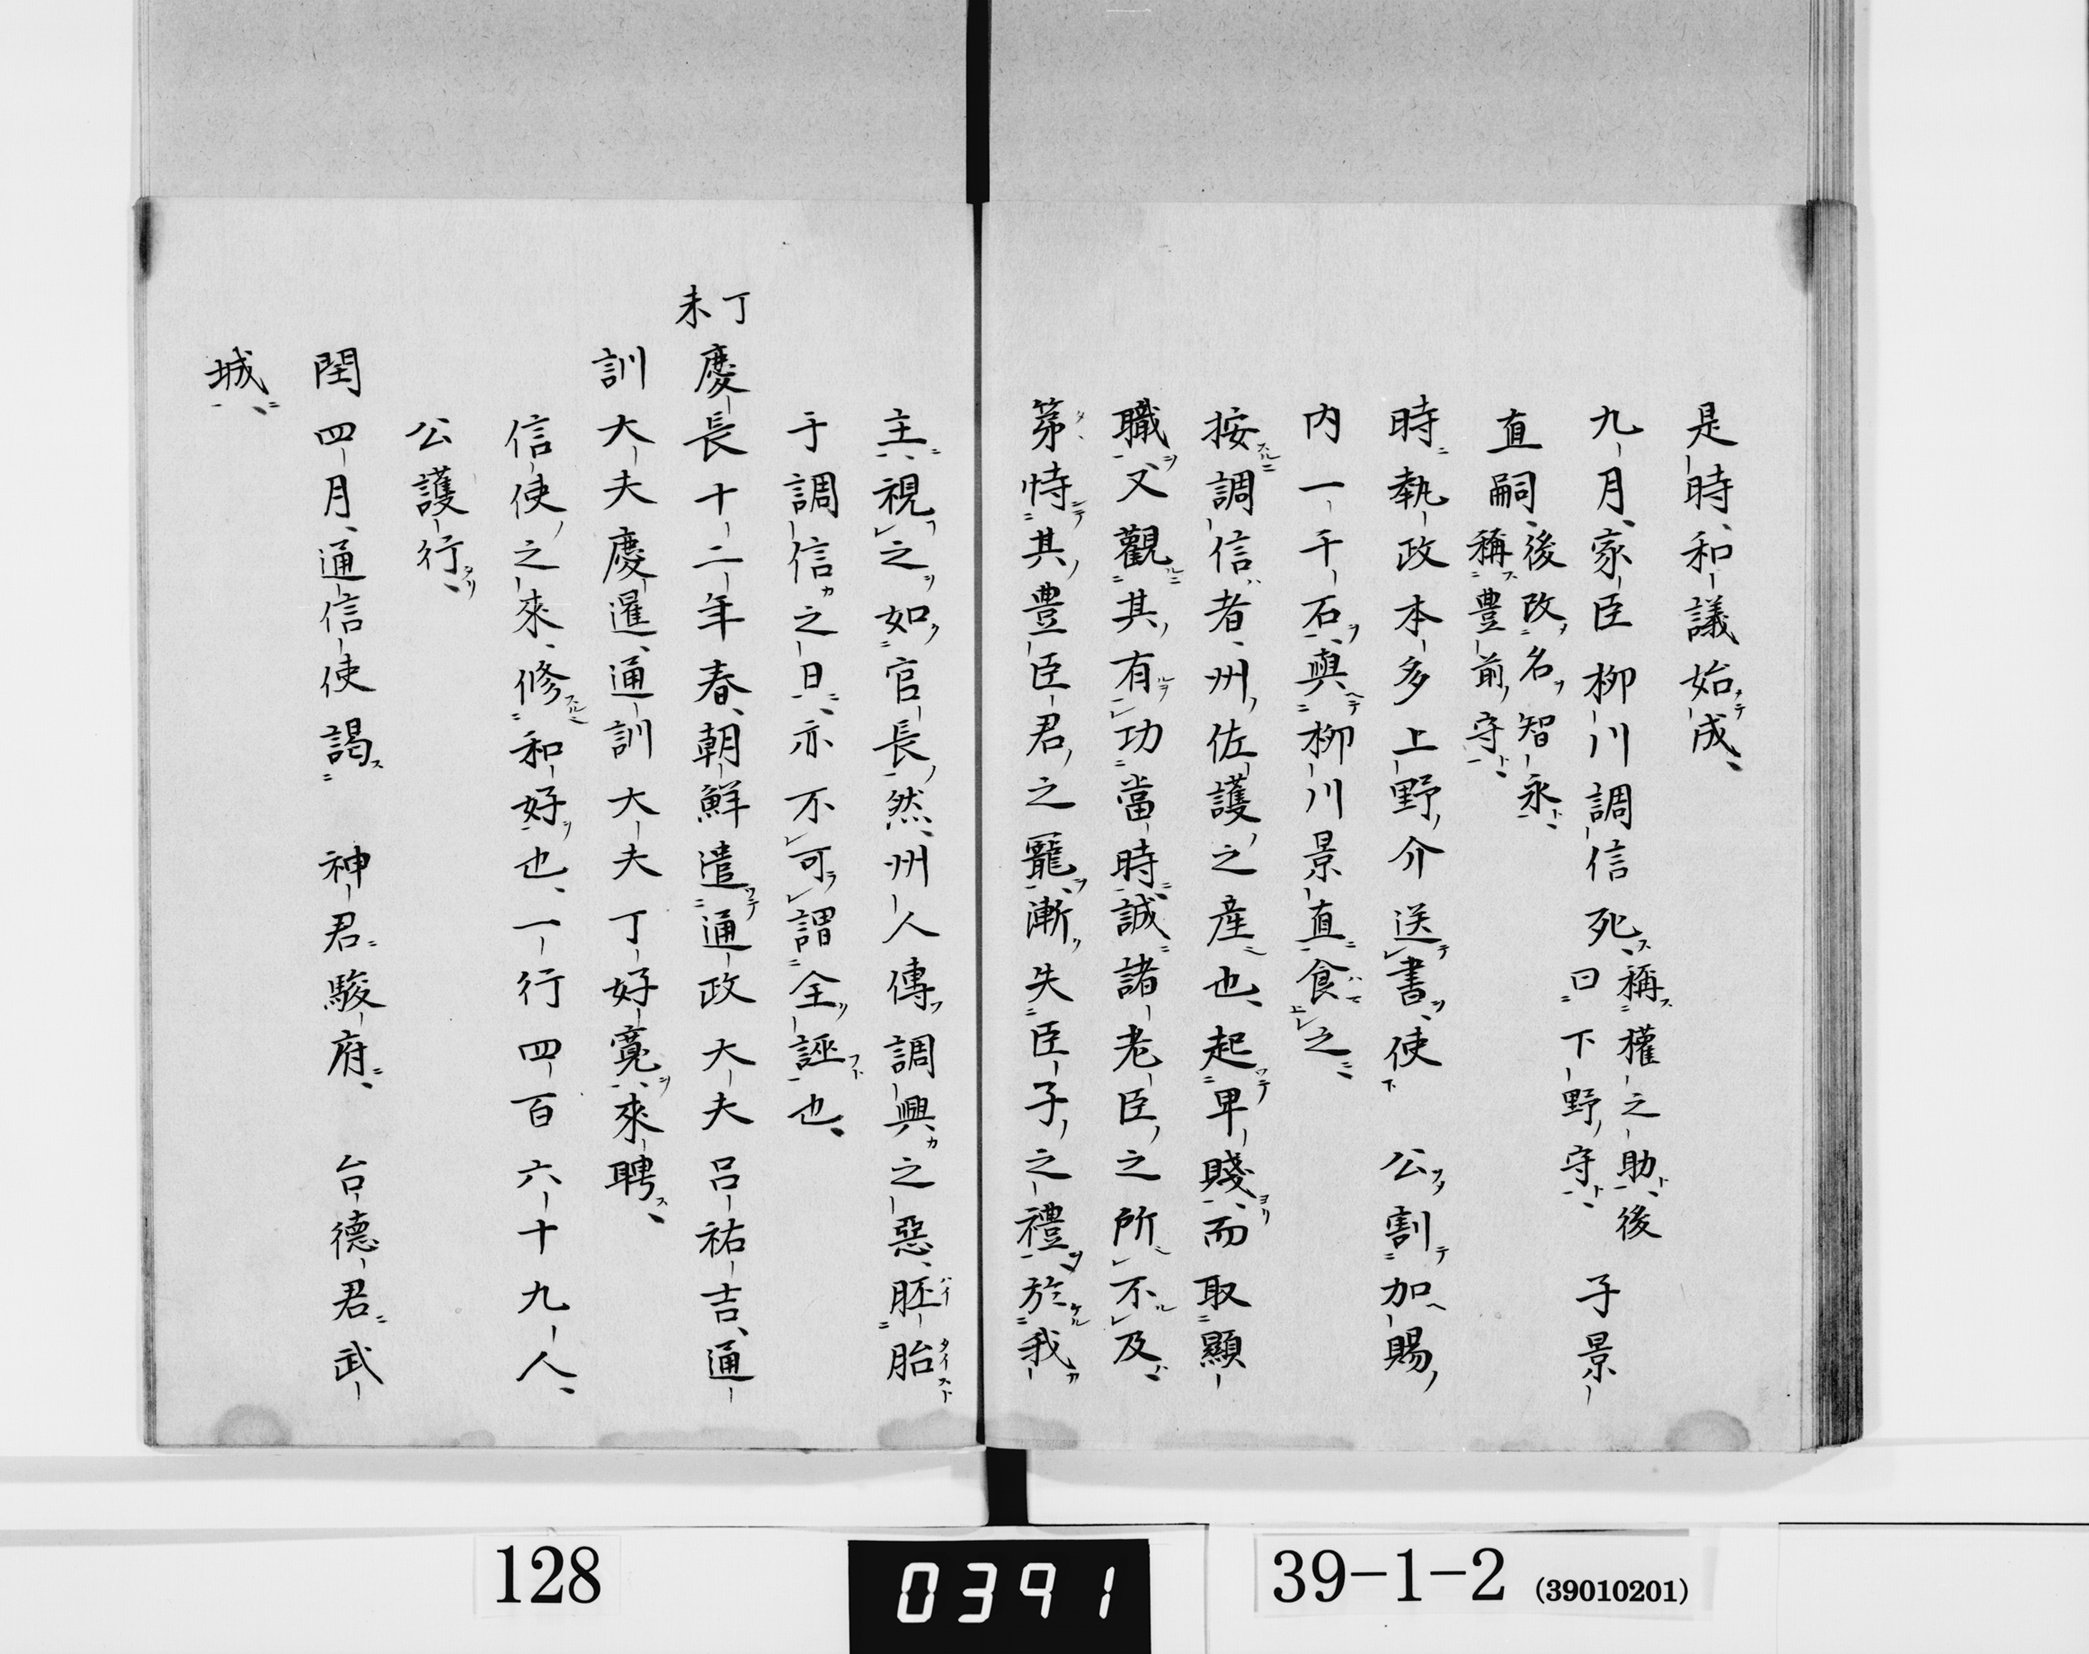 是時、和議始成、
九月、家臣柳川調信死、稱權之助、後曰下野守、子景
直嗣、後改名智永、稱豊前守、
時執政本多上野介送書、使　公割加賜
内一千石、與柳川景直食之、
按調信者、州佐護之産也、起卑賤、而取顯
職、又觀其有功當時、誠諸老臣之所不及
第恃其豊臣君之寵、漸失臣子之禮、於我
主、視之如官長、然、州人傳調興之惡、胚胎
于調信之日、亦不可謂全誣也、
丁未
慶長十二年春、朝鮮遣通政大夫呂祐吉、通
訓大夫慶暹、通訓大夫丁好寛、來聘、
信使之來、修和好也、一行四百六十九人、
公護行、
閏四月、通信使謁　神君駿府、　台德君武
城、
128
0391
39-1-2 (39010201)